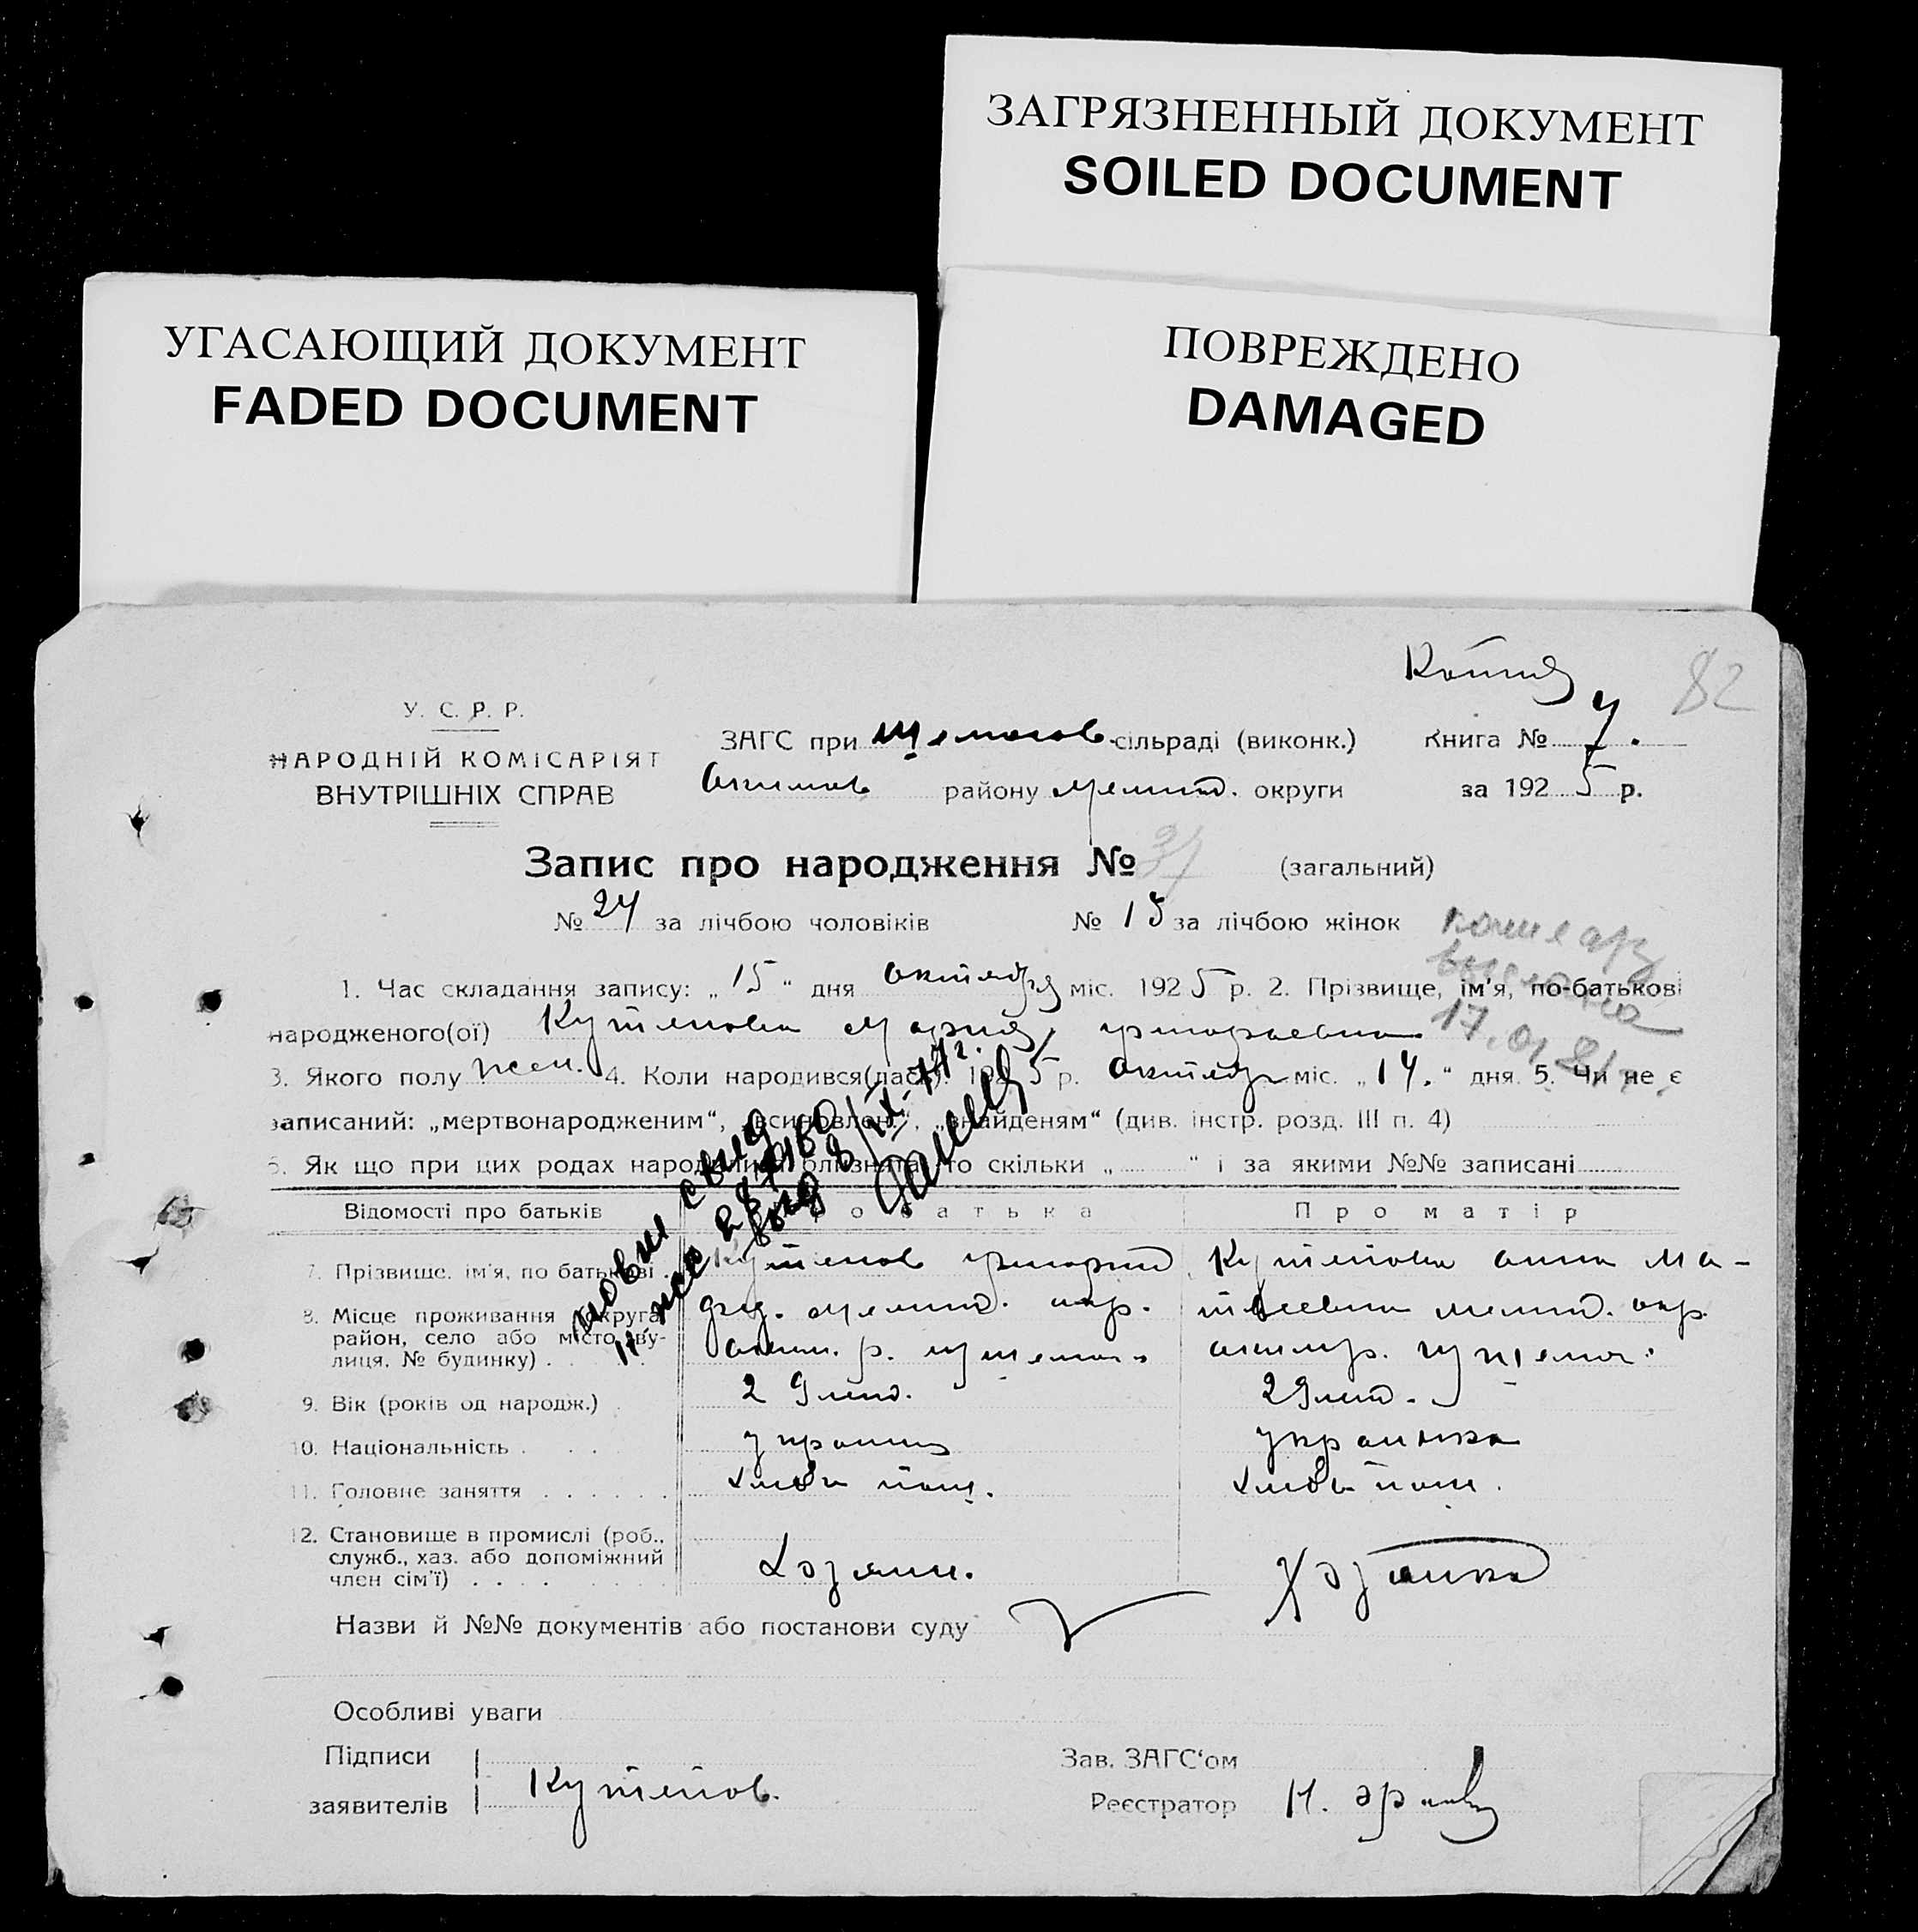 ЗАГРЯЗНЕННЫЙ ДОКУМЕНТ
SOILED DOCUMENT
УГАСАЮЩИЙ ДОКУМЕНТ
FADED DOCUMENT
ПОВРЕЖДЕНО
DAMAGED
Копия 82
У. С. Р. Р.
НАРОДНІЙ КОМІСАРІЯТ
ВНУТРІШНІХ СПРАВ
ЗАГС при сільраді (виконк.) Книга № 7.
Акимов району Мелит. округи за 1925 р.
Запис про народження № 37 (загальний)
№ 24 за лічбою чоловіків № 15 за лічбою жінок
1. Час складання запису: „15“ дня октября міс. 1925 р. 2. Прізвище, ім'я, по-батькові
народженого(ої) Кутепова Мария Григорьевна
3. Якого полу жен. 4. Коли народився(лась): 1925 р. октября міс. „14.“ дня. 5. Чи не є
записаний: „мертвонародженим“, „всиновлен.“, „знайденям“ (див. інстр. розд. III п. 4)
6. Як що при цих родах народилися близнята, то скільки „ “ і за якими №№ записані
17.01.81
Відомості про батьків
Про батька
Про матір
7. Прізвище, ім'я, по батькові . Кутепов Григорий Кутепова Анна Ма-
8. Місце проживання (округа, Мелит. окр. твеевна Мелит. окр.
район, село або місто, ву-
лиця, № будинку) . Аким. р.
9. Вік (років од народж.) . 29 лет. 29 лет.
10. Національність . . . украинец украинка
11. Головне заняття . . . . . . хлебопаш. хлебопаш.
12. Становище в промислі (роб.,
служб., хаз. або допоміжний
член сім'ї) . . . . Хозяин. Хозяйка
Назви й №№ документів або постанови суду
Особливі уваги
Підписи
заявителів Кутепов.
Зав. ЗАГС'ом
Реєстратор